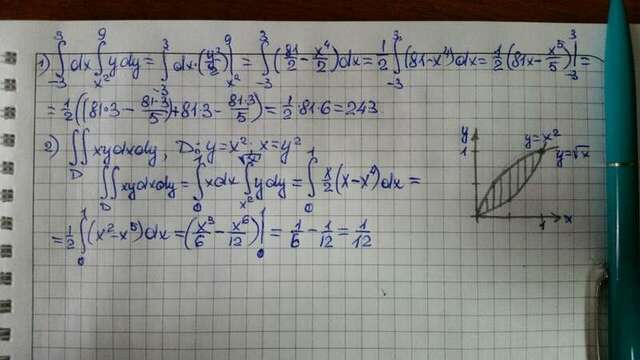 1) ∫₋₃³ dx ∫ₓ²⁹ ydy = ∫₋₃³ dx·(y²/2)|ₓ²⁹ = ∫₋₃³ (81/2 − x⁴/2)dx = 1/2 ∫₋₃³ (81−x⁴)dx = 1/2 (81x − x⁵/5)|₋₃³ =
= 1/2 ((81·3 − 81·3/5) + 81·3 − 81·3/5) = 1/2·81·6 = 243
2) ∬_D xydxdy, D: y=x² · x=y²
∬_D xydxdy = ∫₀¹ xdx ∫ₓ²^√x ydy = ∫₀¹ x/2 (x−x⁴)dx =
= 1/2 ∫₀¹ (x²−x⁵)dx = (x³/6 − x⁶/12)|₀¹ = 1/6 − 1/12 = 1/12
y
1
y=x²
y=√x
1
x